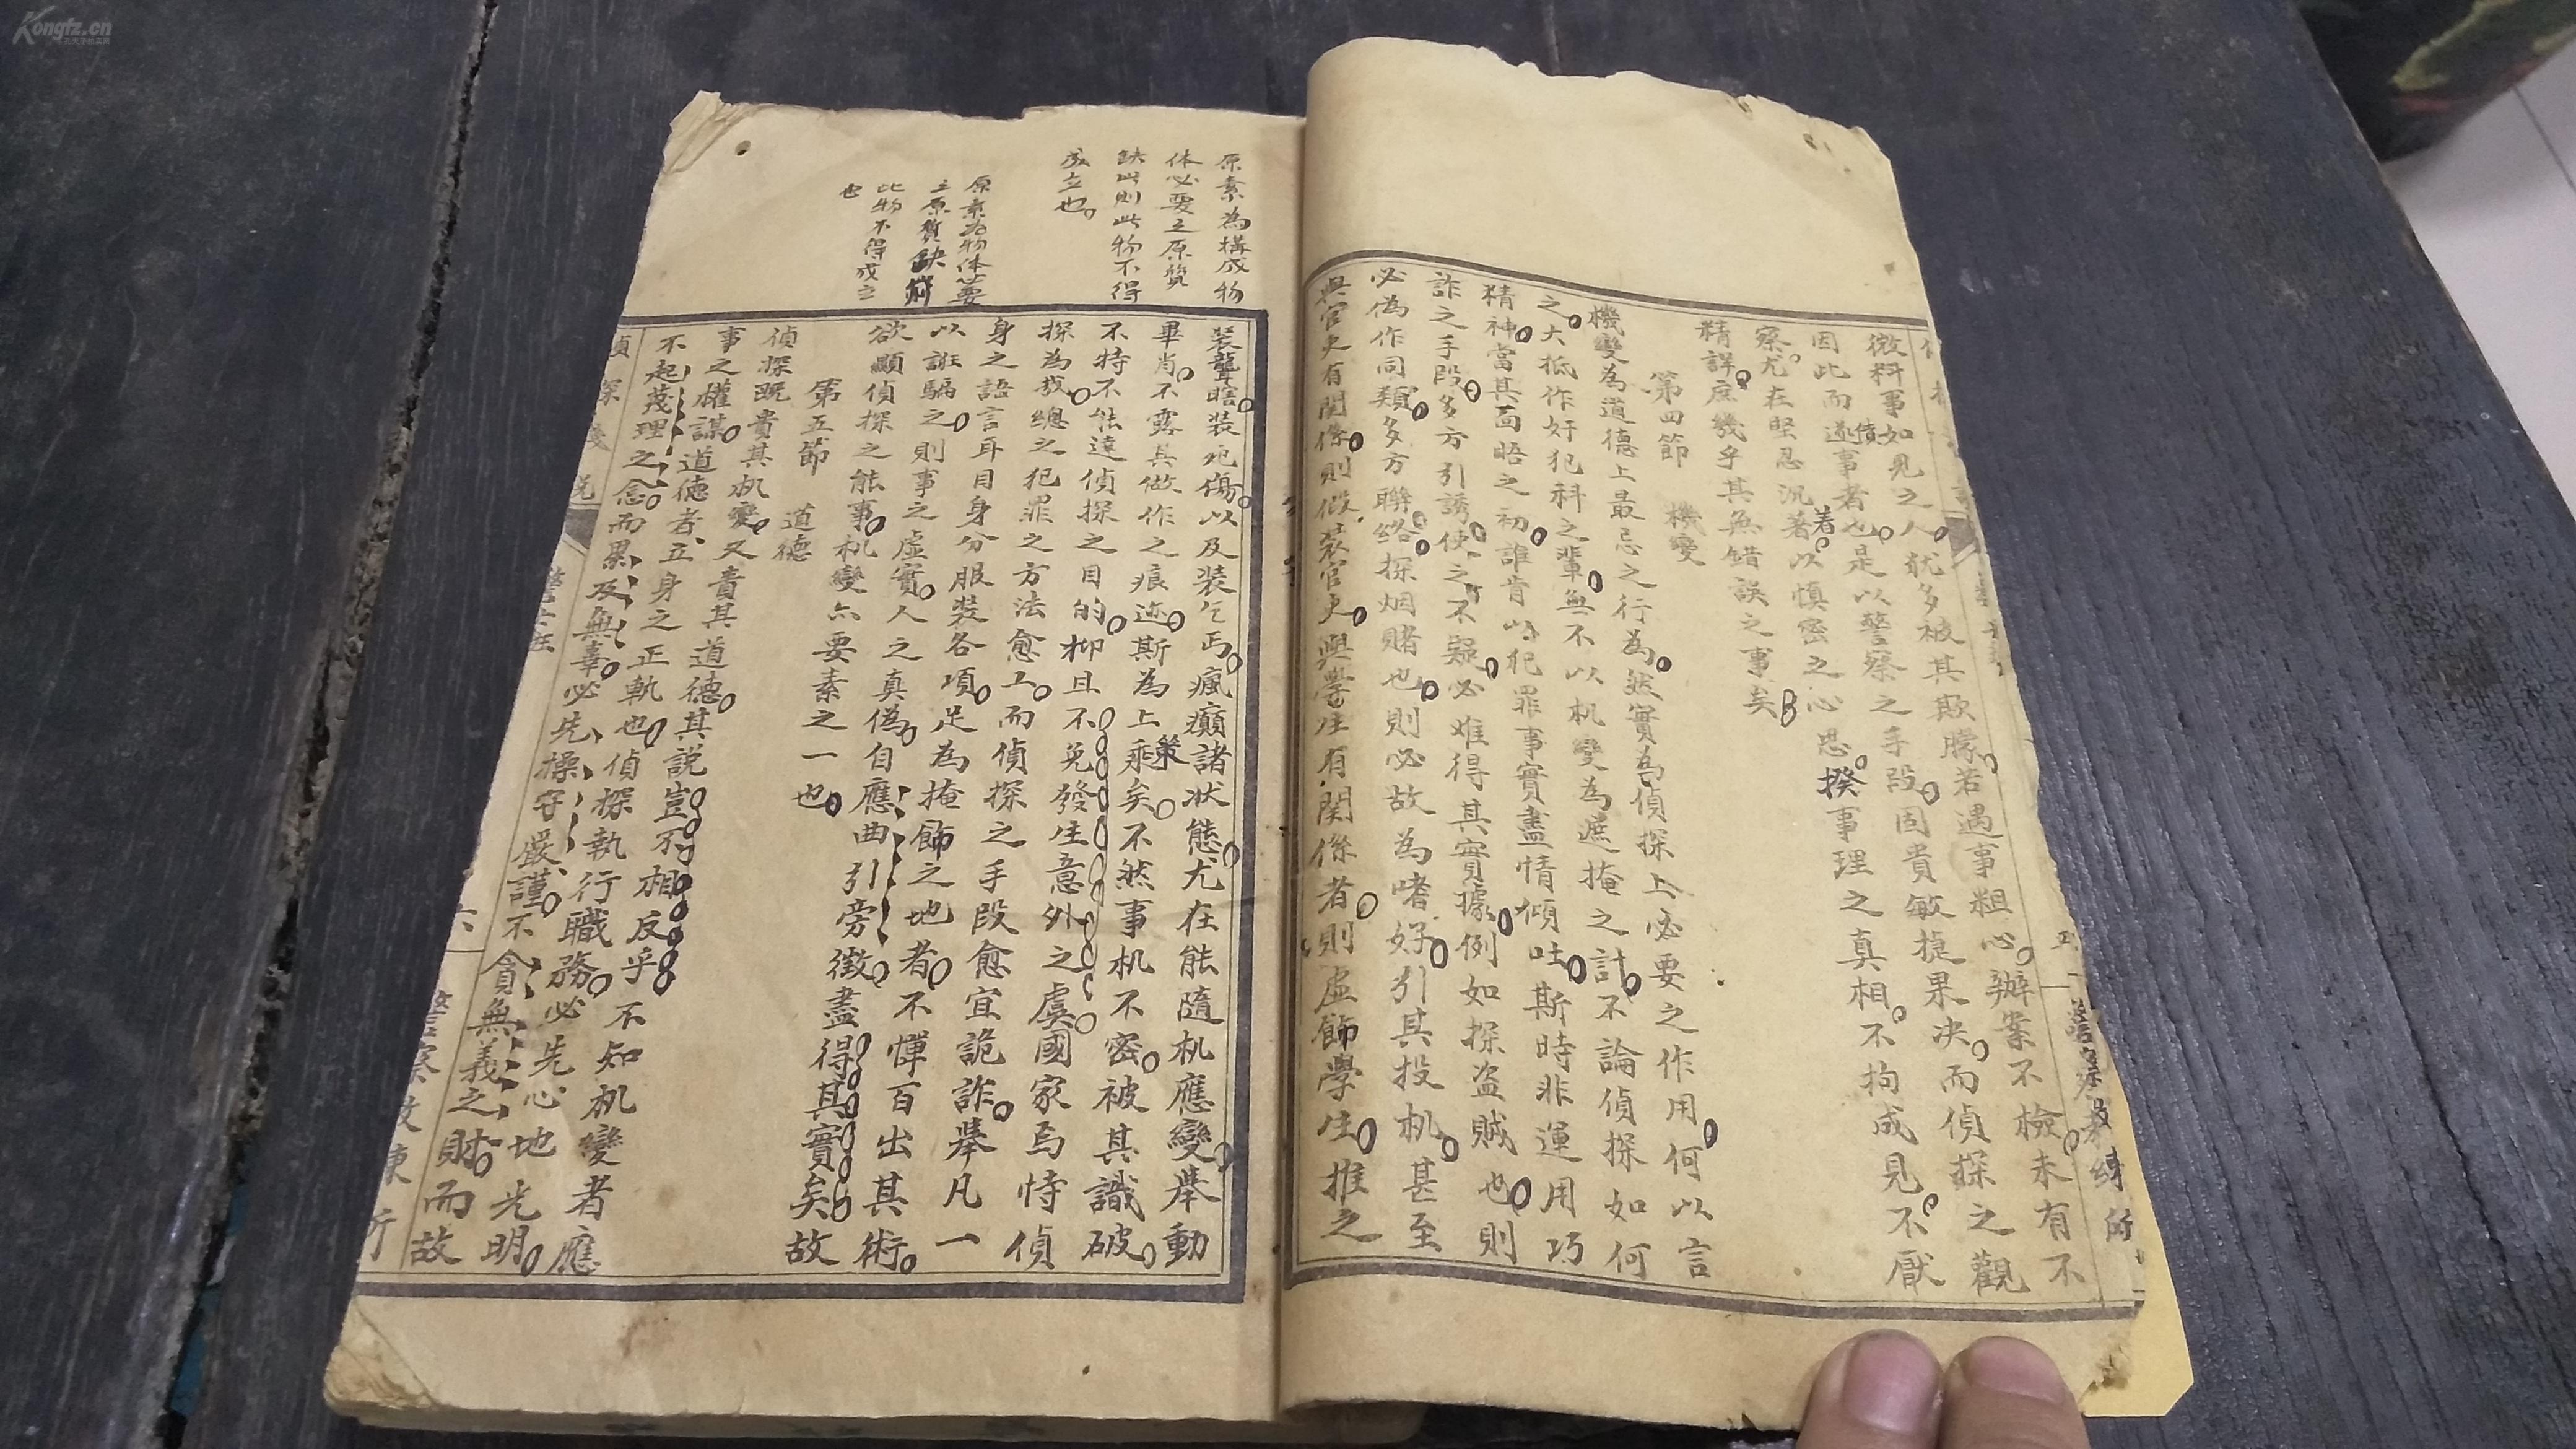 Kongfz.cn
微料事如見之人犹多被其欺朦若遇事粗心辦案不檢未有不
因此而遂僨事者也是以警察之手段固貴敏捷果决而偵探之觀
察尤在堅忍沉著着以慎密之心思揆事理之真相不拘成見不厭
精詳庶幾乎其無錯誤之事矣
第四節 機變
機變為道德上最忌之行為然實為偵探上必要之作用何以言
之大抵作奸犯科之輩無不以机變為遮掩之計不論偵探如何
精神當其面晤之初誰肯以犯罪事實盡情傾吐斯時非運用巧
詐之手段多方引誘使之不疑必难得其實據例如探盗賊也則
必偽作同類多方聯絡探烟賭也則必故為嗜好引其投机甚至
與官吏有関係則假装官吏與學生有関係者則虚飾學生推之
原素為構成物
体必要之原質
缺此則此物不得
成立也
原素為物体必要
之原質缺
此物不得成立
也
装聾瞎装死傷以及装乞丐瘋癲諸狀態尤在能隨机應變舉動
畢肖不露其做作之痕迹斯為上乘策矣不然事机不密被其識破
不特不能達偵探之目的抑且不免發生意外之虞國家焉恃偵
探為哉總之犯罪之方法愈工而偵探之手段愈宜詭詐舉凡一
身之語言耳目身分服装各項足為掩飾之地者不憚百出其術
以誑騙之則事之虛實人之真偽自應曲引旁徵盡得其實矣故
欲顯偵探之能事机變亦要素之一也
第五節 道德
偵探既貴其机變又責其道德其説豈不相反乎不知机變者應
事之權謀道德者立身之正軌也偵探執行職務必先心地光明
不起蔑理之念而累及無辜必先操守嚴謹不貪無義之財而故